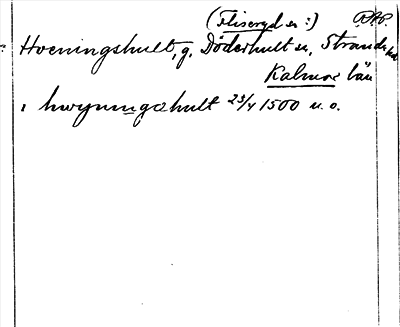 (Fliseryd sn :) RAP.
Hveningshult, g. Döderhult sn, Stranda hd
Kalmar län
i hwynungxhult 23/4 1500 u. o.